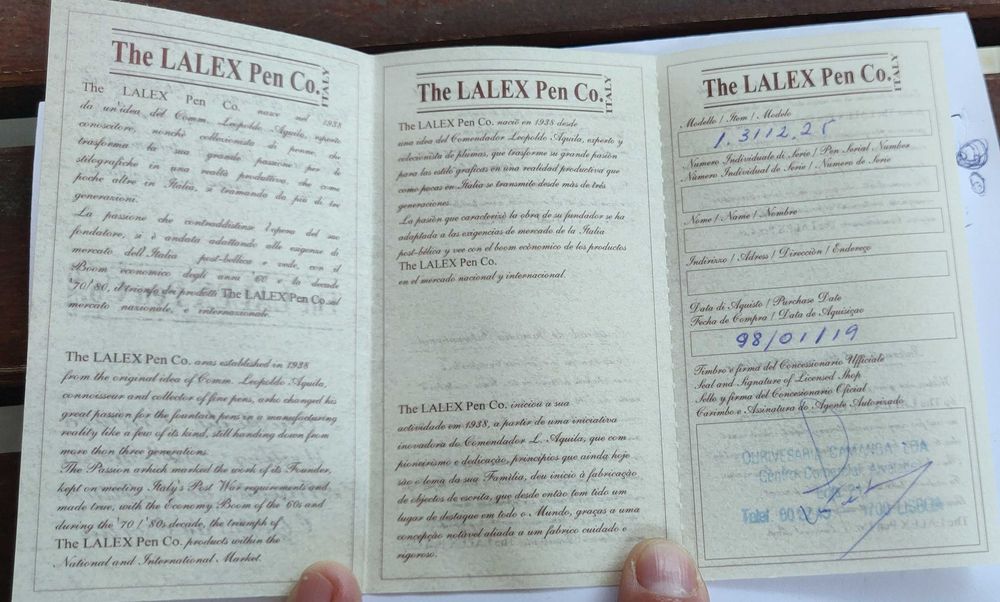 The LALEX Pen Co. ITALY
The LALEX Pen Co. nasce nel 1938
da un'idea del Comm. Leopoldo Aquila, esperto
conoscitore, nonchè collezionista di penne che
trasforma la sua grande passione per le
stilografiche in una realtà produttiva che come
poche altre in Italia, si tramanda da più di tre
generazioni.
La passione che contraddistinse l'opera del suo
fondatore, si è andata adattando alle esigenze di
mercato dell'Italia post-bellica e vede, con il
Boom economico degli anni '60 e la decade
'70/'80, il trionfo dei prodotti The LALEX Pen Co. sul
mercato nazionale, e internazionale.
The LALEX Pen Co. aras established in 1938
from the original idea of Comm. Leopoldo Aquila,
connoisseur and collector of fine pens, who changed his
great passion for the fountain pens in a manufacturing
reality like a few of its kind, still handing down from
more than three generations.
The Passion which marked the work of its Founder,
kept on meeting Italy's Post War requirements and
made true, with the Economy Boom of the '60s and
during the '70/'80s decade, the triumph of
The LALEX Pen Co. products within the
National and International Market.
The LALEX Pen Co. ITALY
The LALEX Pen Co. naciò en 1938 desde
una idea del Comendador Leopoldo Aquila, experto y
colecionista de plumas, que trasforme su grande pasiòn
para las estilo graficas en una realidad productiva que
como pocas en Italia se transmite desde màs de trés
generaciones
La pasiòn que caracterizò la obra de su fundador se ha
adaptada a las exigencias de mercado de la Italia
post-bélica y vee con el boom ecònomico de los productos
The LALEX Pen Co.
en el mercado nacional y internacional.
The LALEX Pen Co. iniciou a sua
actividade em 1938, a partir de uma iniciativa
inovadora do Comendador L. Aquila, que com
pioneirismo e dedicação, princípios que ainda hoje
são o lema da sua Familia, deu inicio à fabricação
de objectos de escrita, que desde então tem tido um
lugar de destaque em todo o Mundo, graças a uma
concepção notàvel aliada a um fabrico cuidado e
rigoroso.
The LALEX Pen Co. ITALY
Modello / Item / Modelo
1.3112.25
Numero Individuale di Serie / Pen Serial Number
Nùmero Individual de Serie / Numero de Serie
Nome / Name / Nombre
Indirizzo / Adress / Direcciòn / Endereço
Data di Aquisto / Purchase Date
Fecha de Compra / Data de Aquisiçao
98/01/19
Timbro e firma del Concessionario Ufficiale
Seal and Signature of Licensed Shop
Sello y firma del Concesionario Oficial
Carimbo e Assinatura do Agente Autorizado
OURIVESARIA CAMANGA LDA
Centro Comercial
Telef. 80 1700 LISBOA